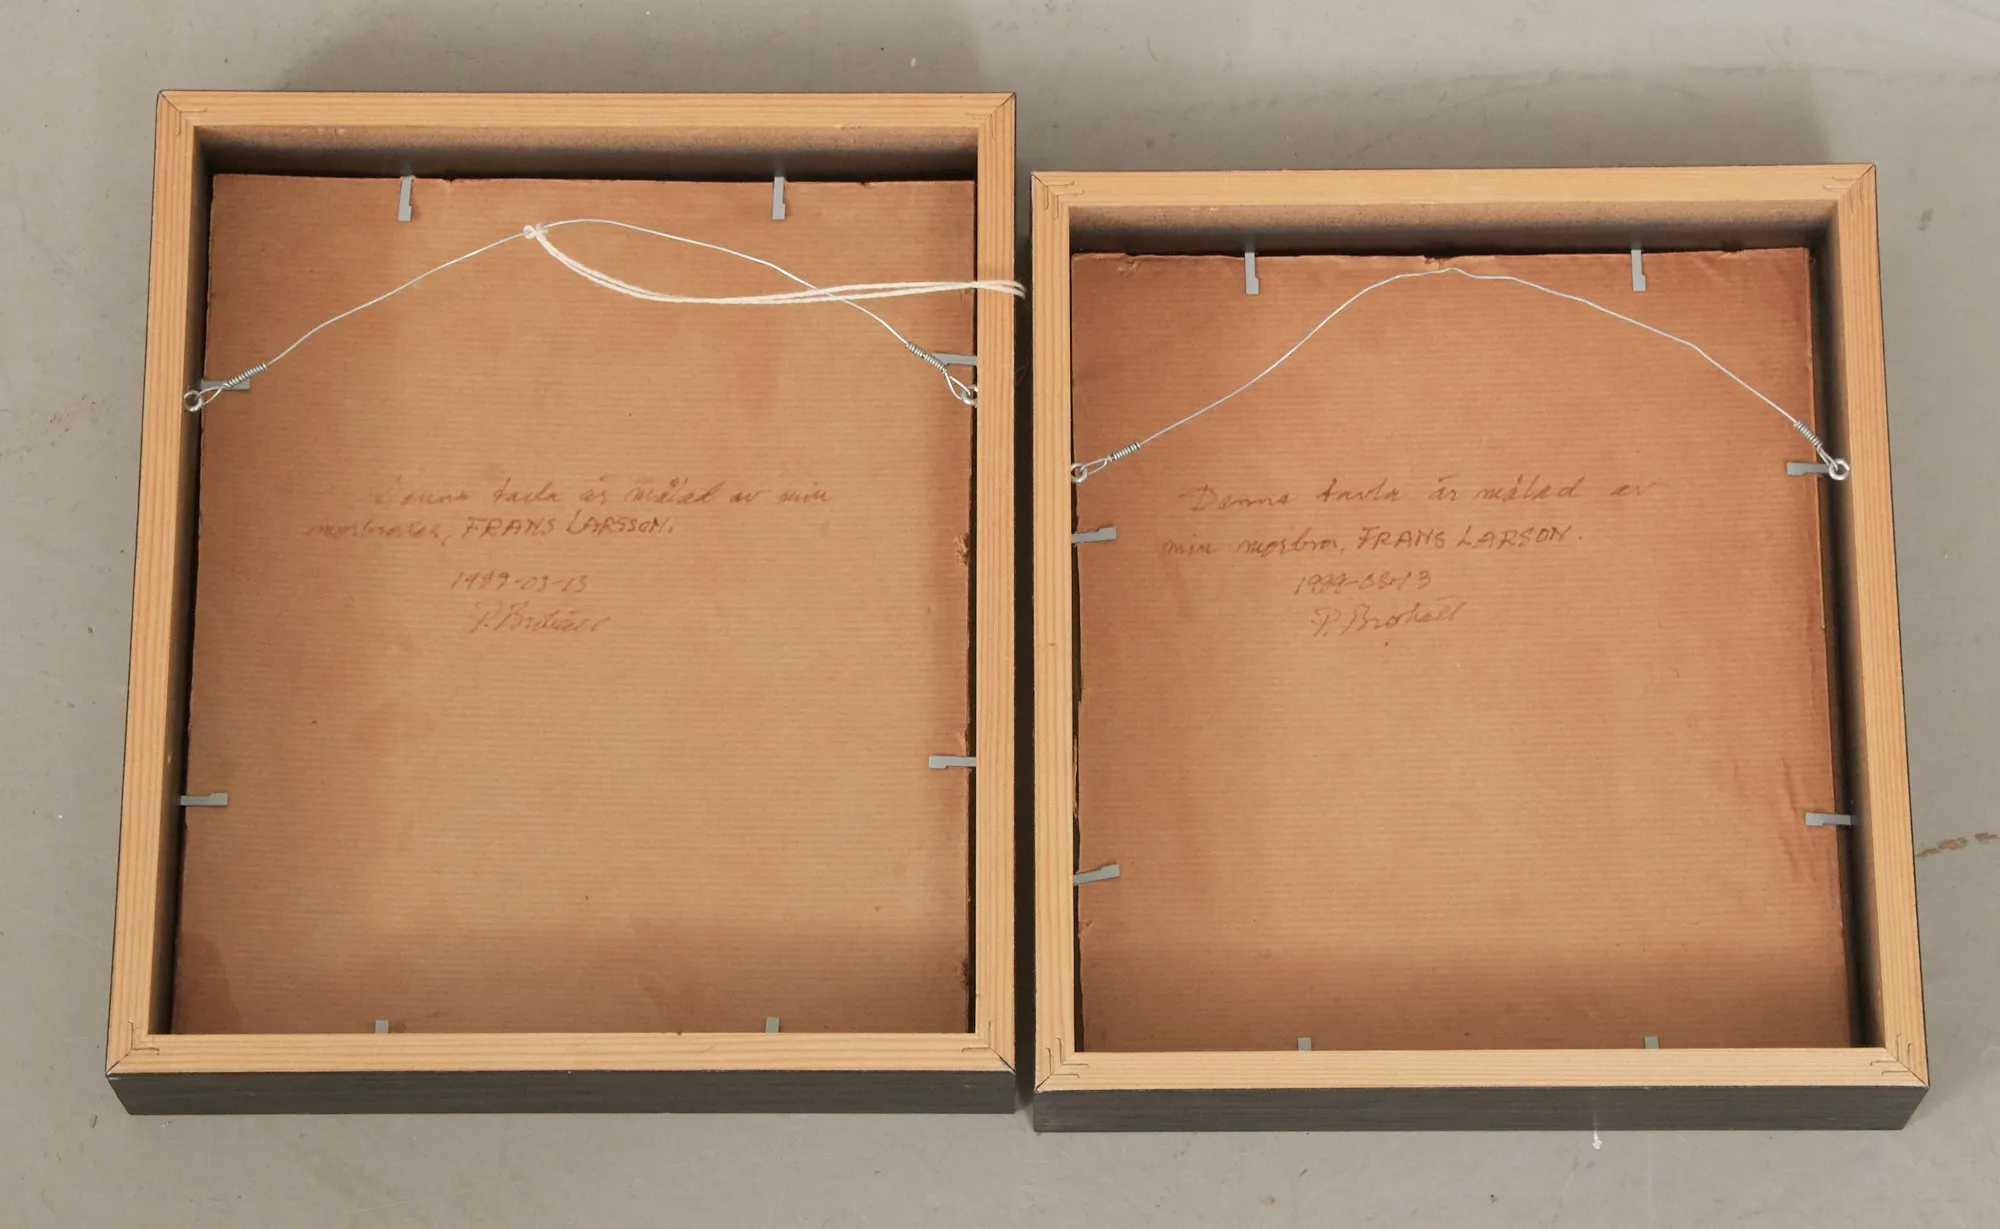 Denna tavla är målad av min
FRANS LARSSON.
1989-03-13
Denna tavla är målad av
min morbror, FRANS LARSON.
1989-03-13